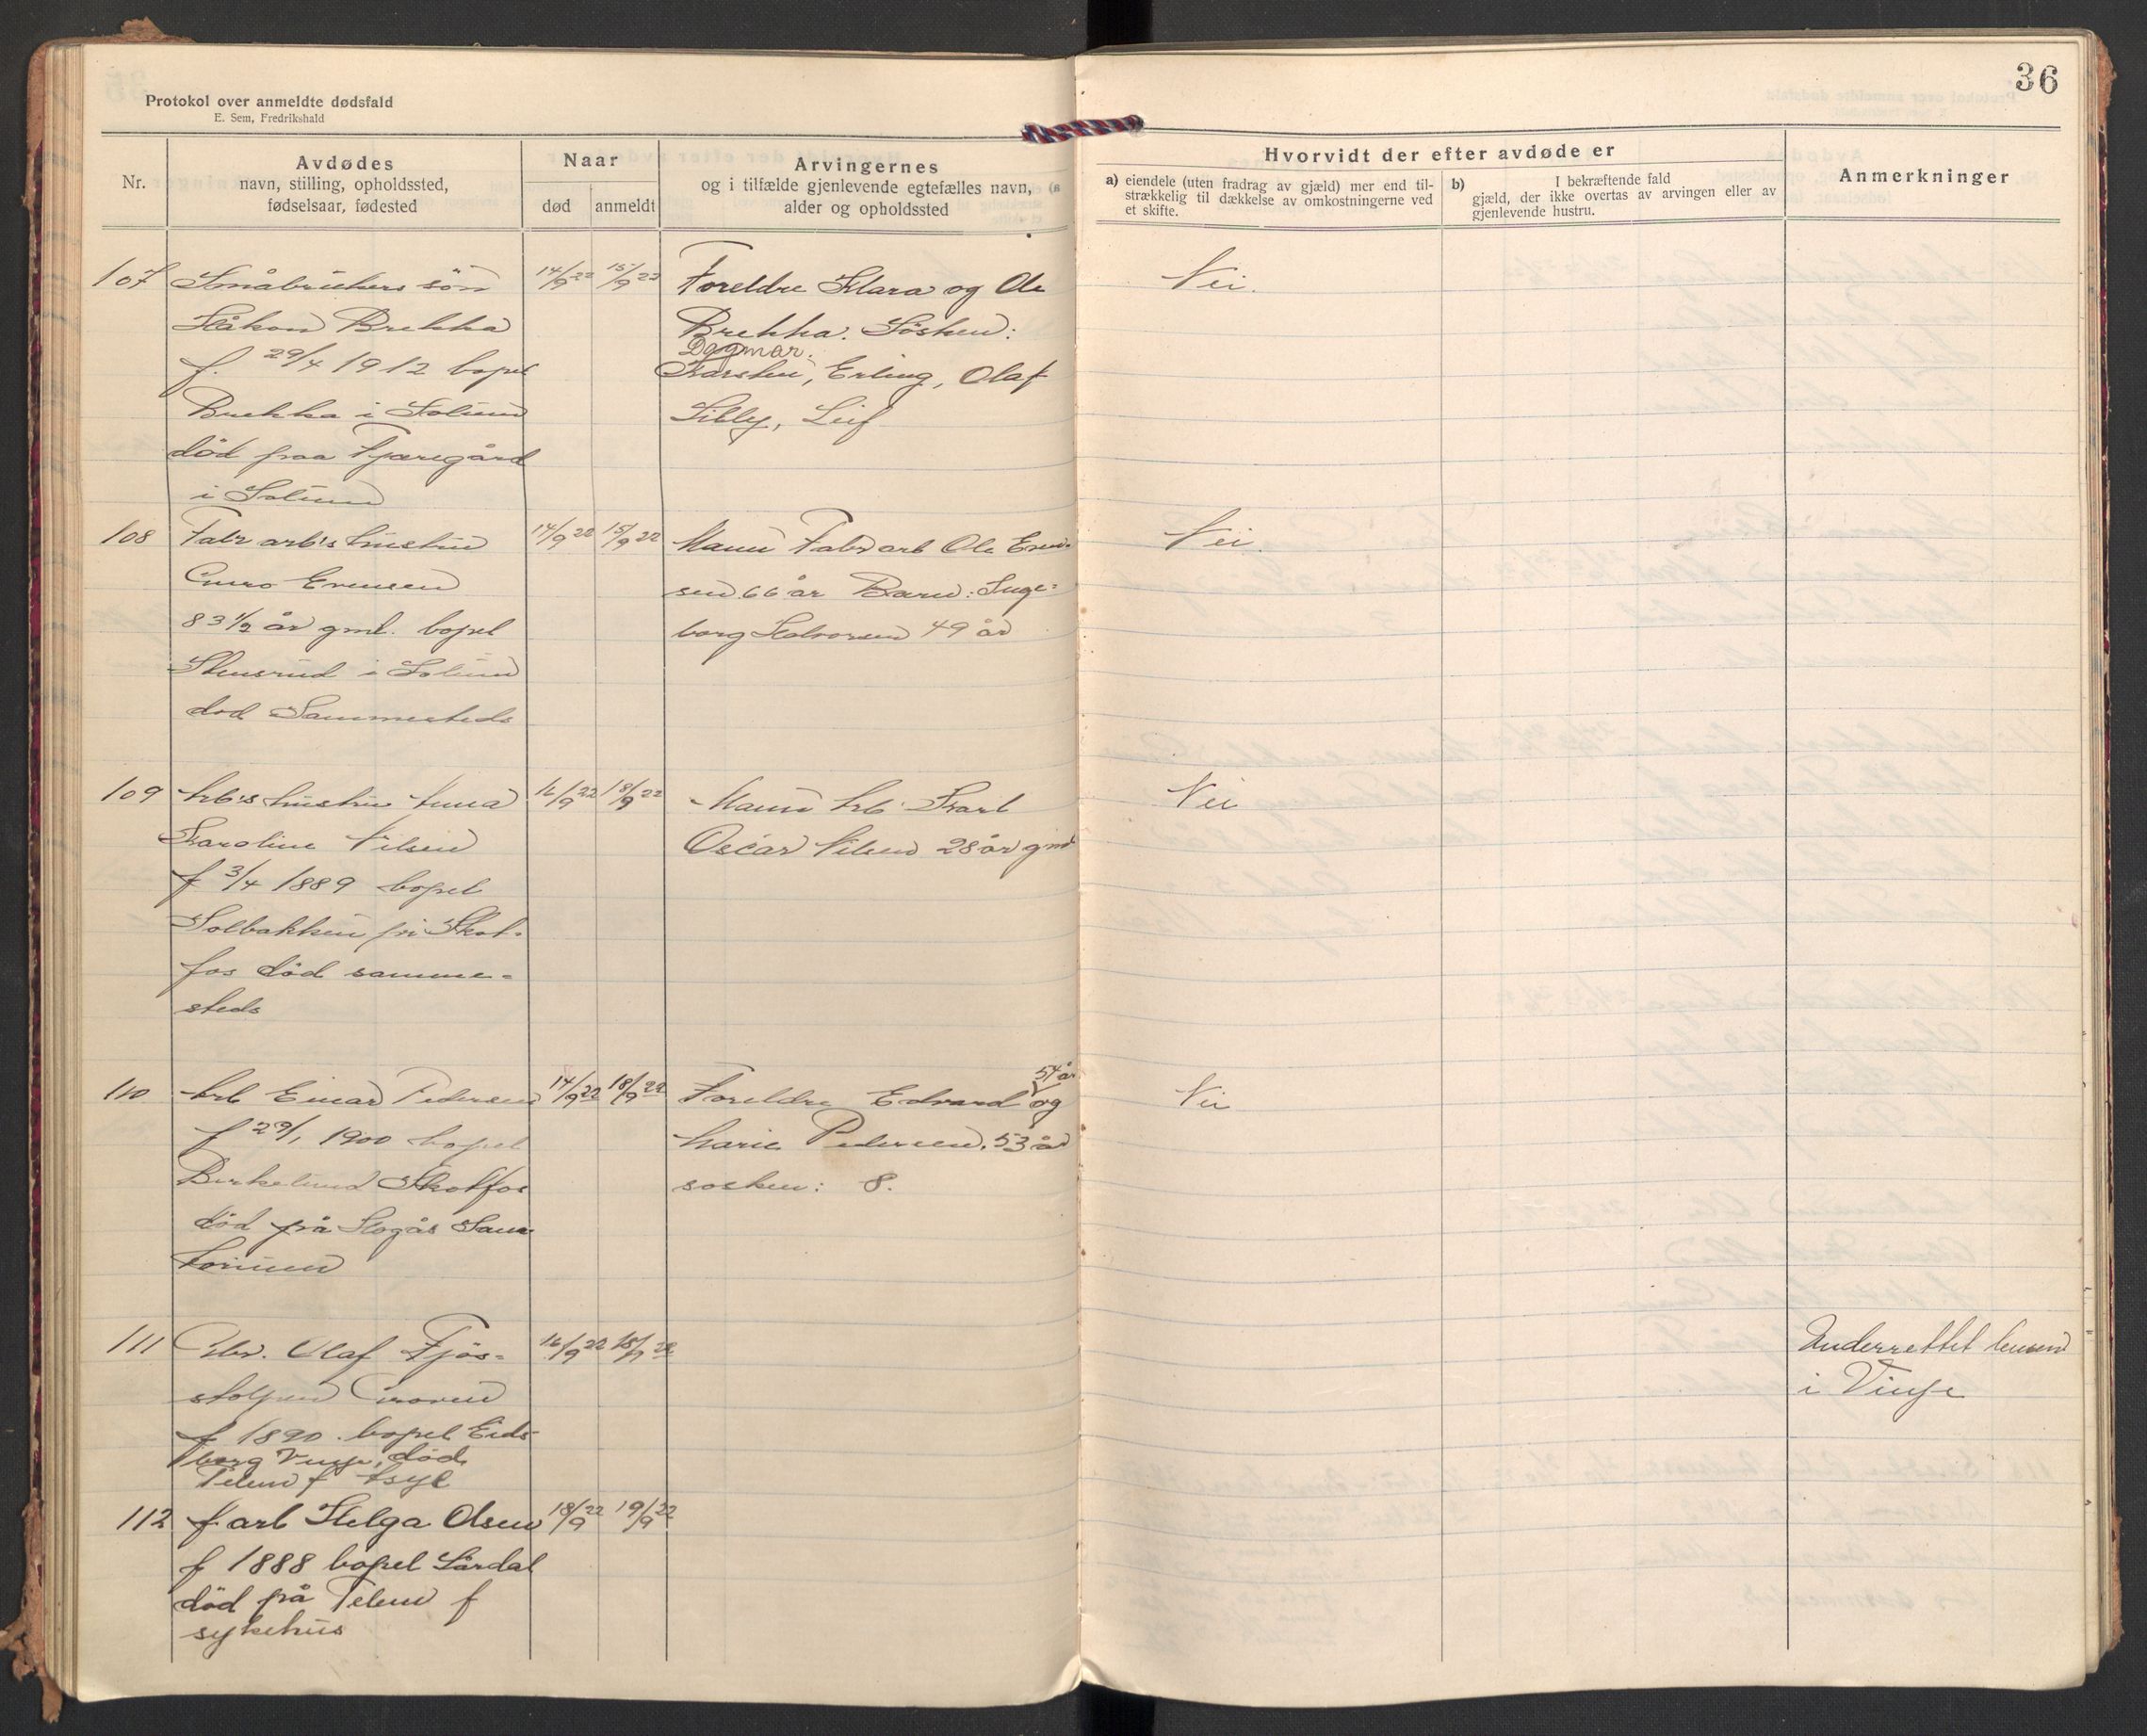 36
Protokol over anmeldte dødsfald
E. Sem, Fredrikshald
Nr.
Avdødes
navn, stilling, opholdssted,
fødselsaar, fødested
Naar
død
anmeldt
Arvingernes
og i tilfælde gjenlevende egtefælles navn,
alder og opholdssted
Hvorvidt der efter avdøde er
a) eiendele (uten fradrag av gjæld) mer end til-
strækkelig til dækkelse av omkostningerne ved
et skifte.
b) I bekræftende fald
gjæld, der ikke overtas av arvingen eller av
gjenlevende hustru.
Anmerkninger
107 Småbrukers søn 14/9 22 15/9 22 Foreldre Klara og Ole Nei.
Håkon Brekka Brekka. Søsken:
Dagmar.
f. 29/4 1912 bopel Karsten, Erling, Olaf
Brekka i Solum Lilly, Leif
død paa Fjæregård
i Solum
108 Fabr arb's hustru 14/9 22 15/9 22 Mann Fabr arb Ole Even- Nei.
Guro Evensen sen 66 år Barn: Inge-
83 1/2 år gml. bopel borg Halvorsen 49 år
Stensrud i Solum
død Sammesteds
109 Arb's hustru Anna 16/9 22 18/9 22 Mann Arb. Karl Nei
Karoline Nilsen Oscar Nilsen 28 år gml
f 3/4 1889 bopel
Solbakken pr Skot-
fos død samme-
steds
110 Arb Einar Pedersen 14/9 22 18/9 22 Foreldre Edvard 54 år og Nei
f 29/1 1900 bopel Marie Pedersen, 53 år
Birkelund Skotfos søsken: 8.
død på Høgås Sana
torium
111 Olaf Fjøs- 16/9 22 18/9 22 Underrettet lensm
i Vinje
f 1890. bopel Eids-
borg død
Telem f Asyl
112 f. arb Helga Olsen 18/9 22 19/9 22
f 1888 bopel Lårdal
død på Telem f
sykehus